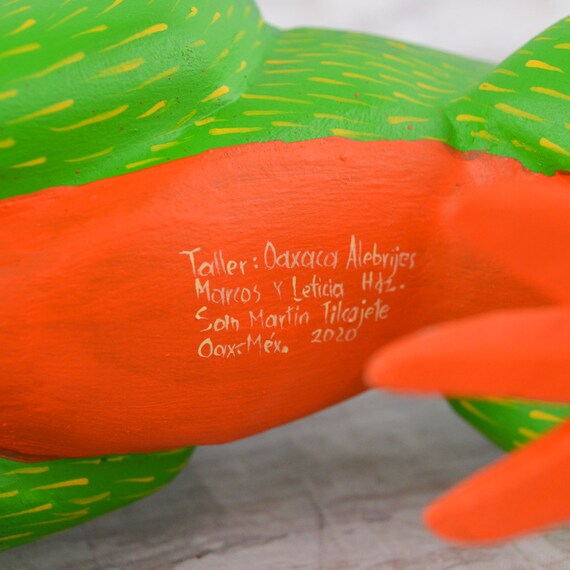 Taller: Oaxaca Alebrijes
Marcos Y Leticia Hdz.
San Martin Tilcajete
Oax. Méx. 2020